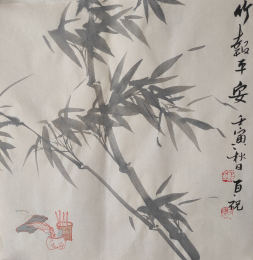 竹報平安
壬寅秋日百祝